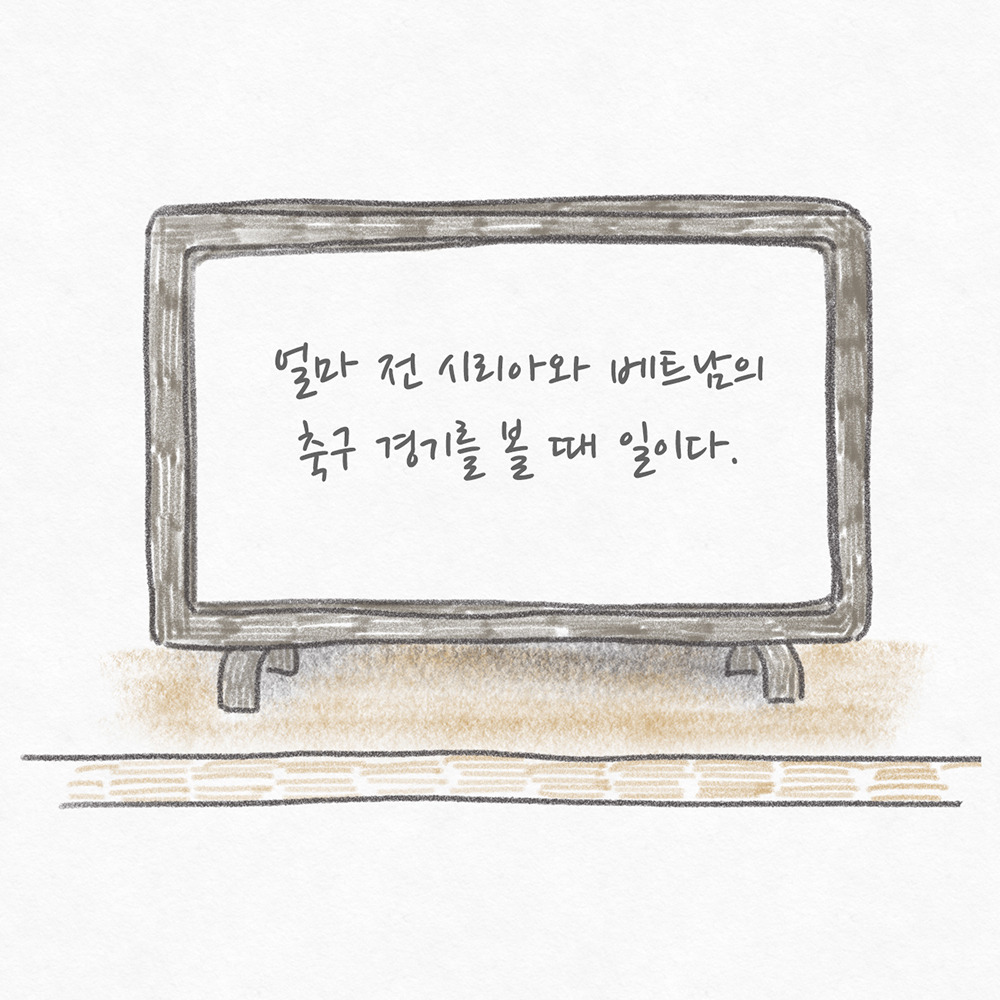 얼마 전 시리아와 베트남의
축구 경기를 볼 때 일이다.